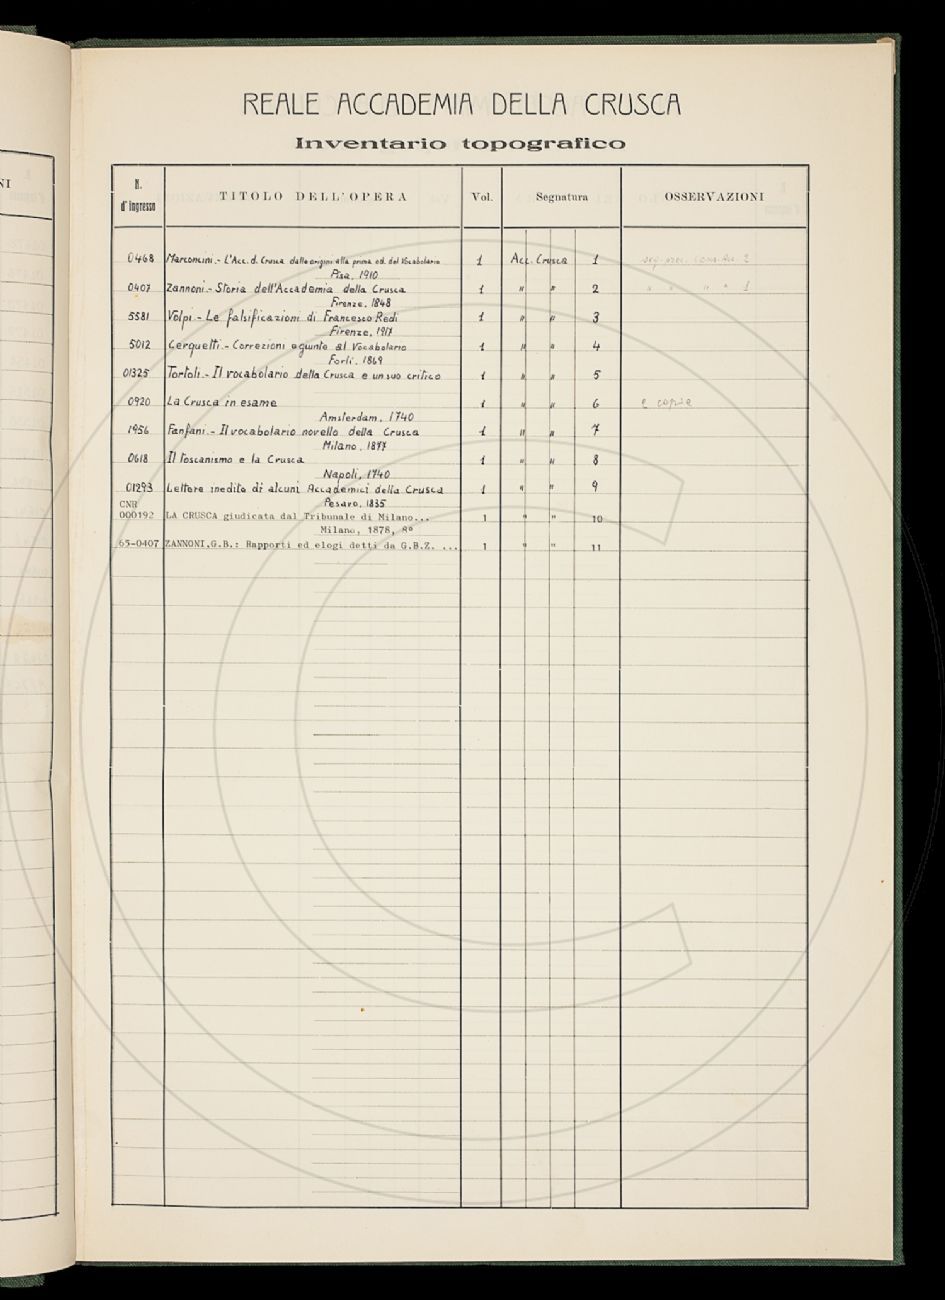 REALE ACCADEMIA DELLA CRUSCA
Inventario topografico
NI
N. d'Ingresso TITOLO DELL'OPERA Vol. Segnatura OSSERVAZIONI
0468 Marconcini.- L'Acc. d. Crusca dalle origini alla prima ed. del Vocabolario 1 Acc. Crusca 1
Pisa, 1910
0407 Zannoni.- Storia dell'Accademia della Crusca 1 " " 2 " " " " 1
Firenze, 1848
5581 Volpi - Le falsificazioni di Francesco Redi 1 " " 3
Firenze, 1917
5012 Cerquetti.- Correzioni e giunte al Vocabolario 1 " " 4
Forlì, 1869
01325 Tortoli.- Il vocabolario della Crusca e un suo critico 1 " " 5
0920 La Crusca in esame 1 " " 6 e copia
Amsterdam, 1740
1956 Fanfani.- Il vocabolario novello della Crusca 1 " " 7
Milano, 1877
0618 Il toscanismo e la Crusca 1 " " 8
Napoli, 1740
01293 Lettere inedite di alcuni Accademici della Crusca 1 " " 9
Pesaro, 1835
CNR
000192 LA CRUSCA giudicata dal Tribunale di Milano... 1 " " 10
Milano, 1878, 8°
65-0407 ZANNONI,G.B.: Rapporti ed elogi detti da G.B.Z. ... 1 " " 11